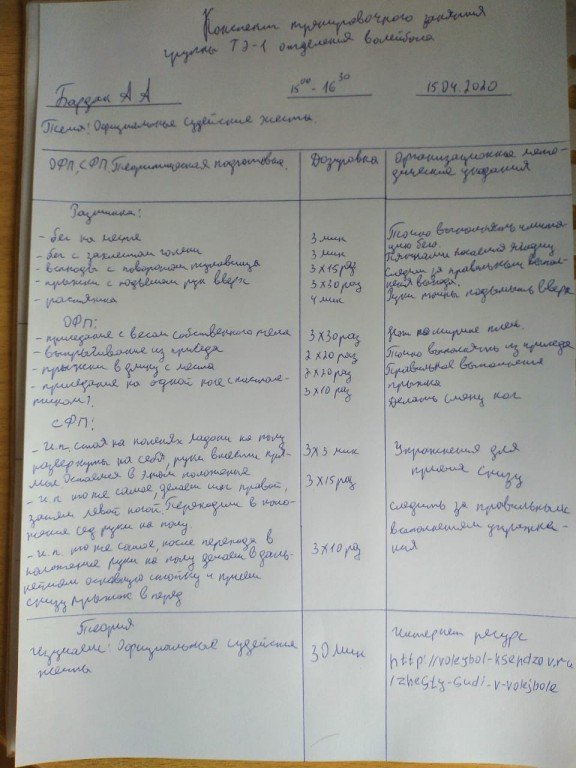 Конспект тренировочного занятия
группы ТЭ-1 отделения волейбола
Бардюк А А 15⁰⁰-16³⁰ 15.04.2020
Тема: Официальные судейские жесты.
ОФП, СФП. Теоритическая подготовка. Дозировка Организационные мето-
дические указания
Разминка:
- бег на месте 3 мин Точно выполнять имита-
цию бега.
- бег с захлестом голени 3 мин Пятками касаемся ягодиц
- выпады с поворотом туловища 3×15 раз Следим за правильным выпол-
нения выпада.
- прыжки с подъёмом рук вверх 3×30 раз Руки точны подымать вверх
- растяжка 4 мин
ОФП:
- приседание с весом собственного тела 3×30 раз Ноги по ширине плеч.
- выпрыгивание из приседа 2×20 раз Точно выполнять из приседа
- прыжки в длину с места 2×20 раз Правильное выполнения
прыжка
- приседание на одной ноге с пистоле-
тиком). 3×10 раз Делать смену ног
СФП:
- И.п. стоя на коленях ладони на полу
развернуты на себя, руки вместе пря-
мые остаемся в этом положение 3×3 мин Упражнения для
приема снизу
- и.п. то же самое, делаем шаг правой,
затем левой ногой. Переходим в поло-
жение сед руки на полу 3×15 раз следить за правильным
выполнением упражне-
ния
- И.п. то же самое, после перехода в
положение руки на полу делаем в даль-
нейшем основную стойку и прием
снизу прыжок вперед 3×10 раз
Теория
Изучаем: Официальные судейские
жесты 30 мин Интернет ресурс
http://volejbol-ksendzov.ru
/zhesty-sudi-v-volejbole